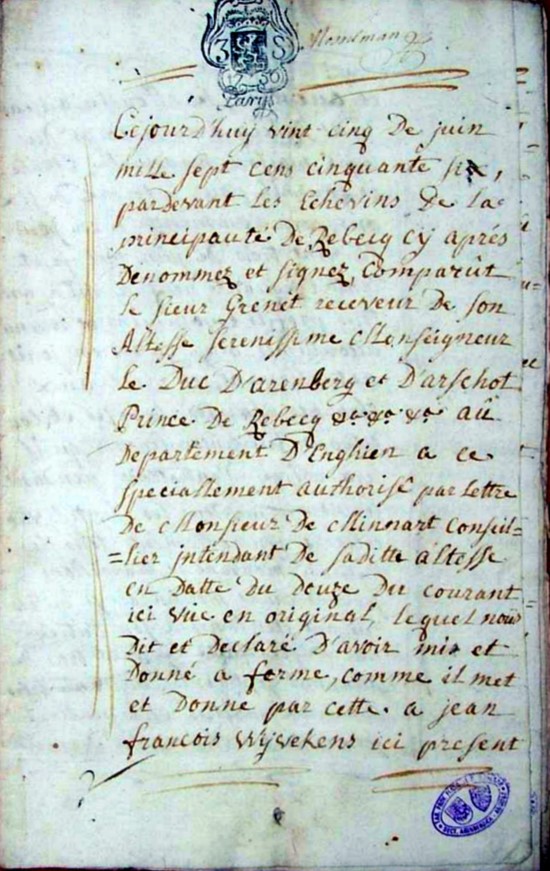 3 S
1756
Cejourd'huy vint cinq De juin
mille sept cens cinquante six,
pardevant les Echevins de la
principauté De Rebecq cy aprés
Denommez et signez, Comparût
le sieur Grenet receveur De son
Altesse serenissime Monseigneur
le Duc D'arenberg et D'arschot
Prince De Rebecq &a. &a. &a. aû
Departement D'Enghien a ce
speciallement authorisé par Lettre
De Monsieur De Minnart Conseil=
=lier jntendant De saditte altesse
en Datte du douze Du courant
ici vüe en original, lequel nous
Dit et Declaré D'avoir mis et
Donné a ferme, comme il met
et Donne par cette. a jean
francois Wyvekens ici present